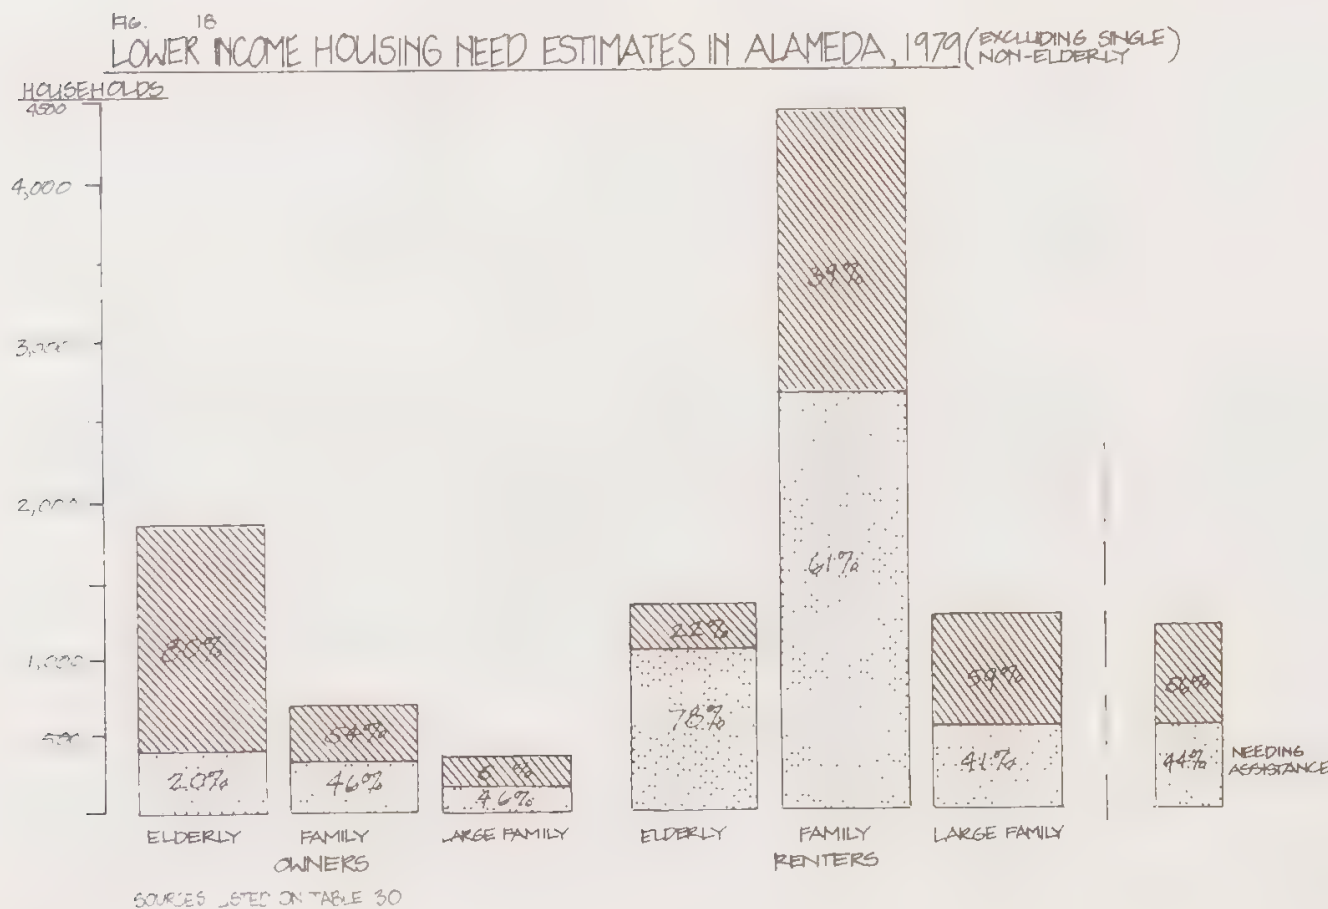 FIG. 18
LOWER INCOME HOUSING NEED ESTIMATES IN ALAMEDA, 1979 (EXCLUDING SINGLE NON-ELDERLY)
HOUSEHOLDS
4500
4,000
3,000
2,000
1,000
500
80%
20%
54%
46%
46%
22%
78%
39%
61%
59%
41%
56%
44%
NEEDING ASSISTANCE
ELDERLY FAMILY LARGE FAMILY ELDERLY FAMILY LARGE FAMILY
OWNERS RENTERS
SOURCES LISTED ON TABLE 30